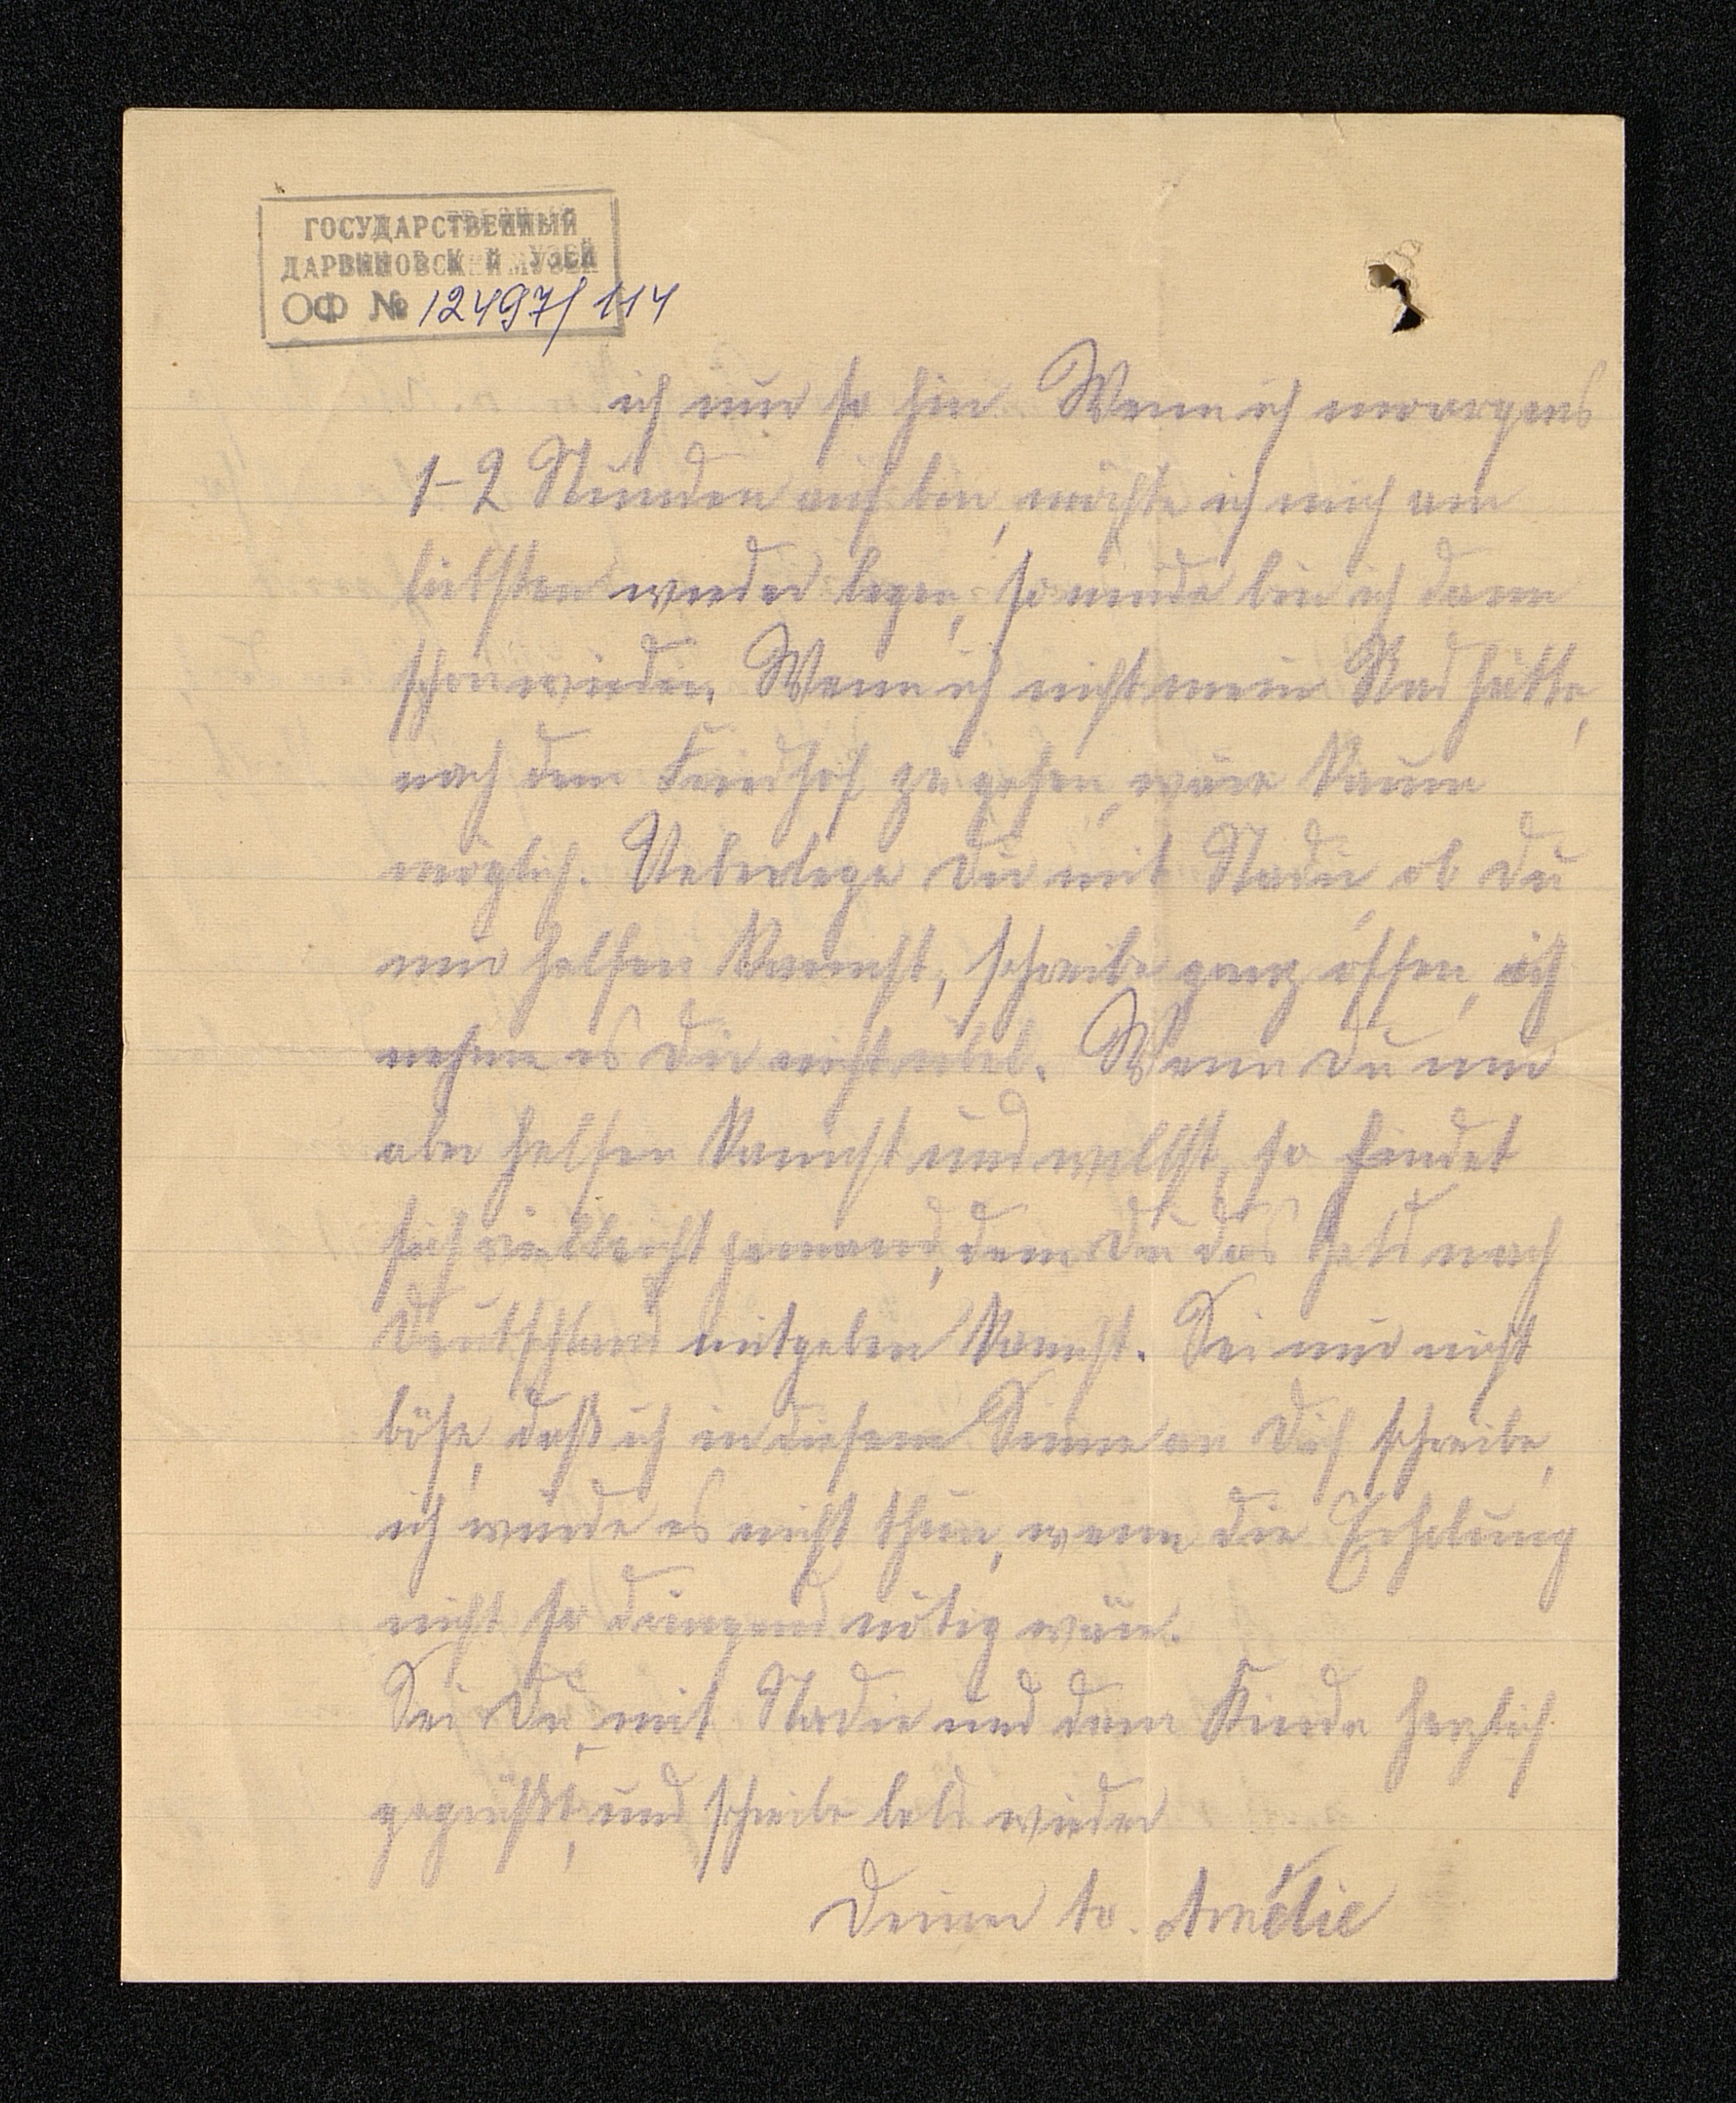 ГОСУДАРСТВЕННЫЙ
ДАРВИНОВСКИЙ МУЗЕЙ
ОФ № 12497/114
ich nur so hin. Wenn ich morgens
1-2 Stunden auf bin, möchte ich mich am
liebsten wieder legen, so müde bin ich dann
schon wieder. Wenn ich nicht mein Rad hätte,
nach dem Friedhof zu gehen, wäre kaum
möglich. Ueberlege Dir mit Nadia ob Du
mir helfen kannst, schreibe ganz offen, ich
nehme es Dir nicht übel. Wenn Du mir
aber helfen kannst und willst, so findet
sich vielleicht jemand, dem Du das Geld nach
Deutschland mitgeben kannst. Sei mir nicht
böse, daß ich in diesem Sinne an Dich schreibe,
ich würde es nicht thun, wenn die Erholung
nicht so dringend nötig wäre.
Sei Du, mit Nadia und dem Kinde herzlich
gegrüßt, und schreibe bald wieder
Deiner tr. Amélie